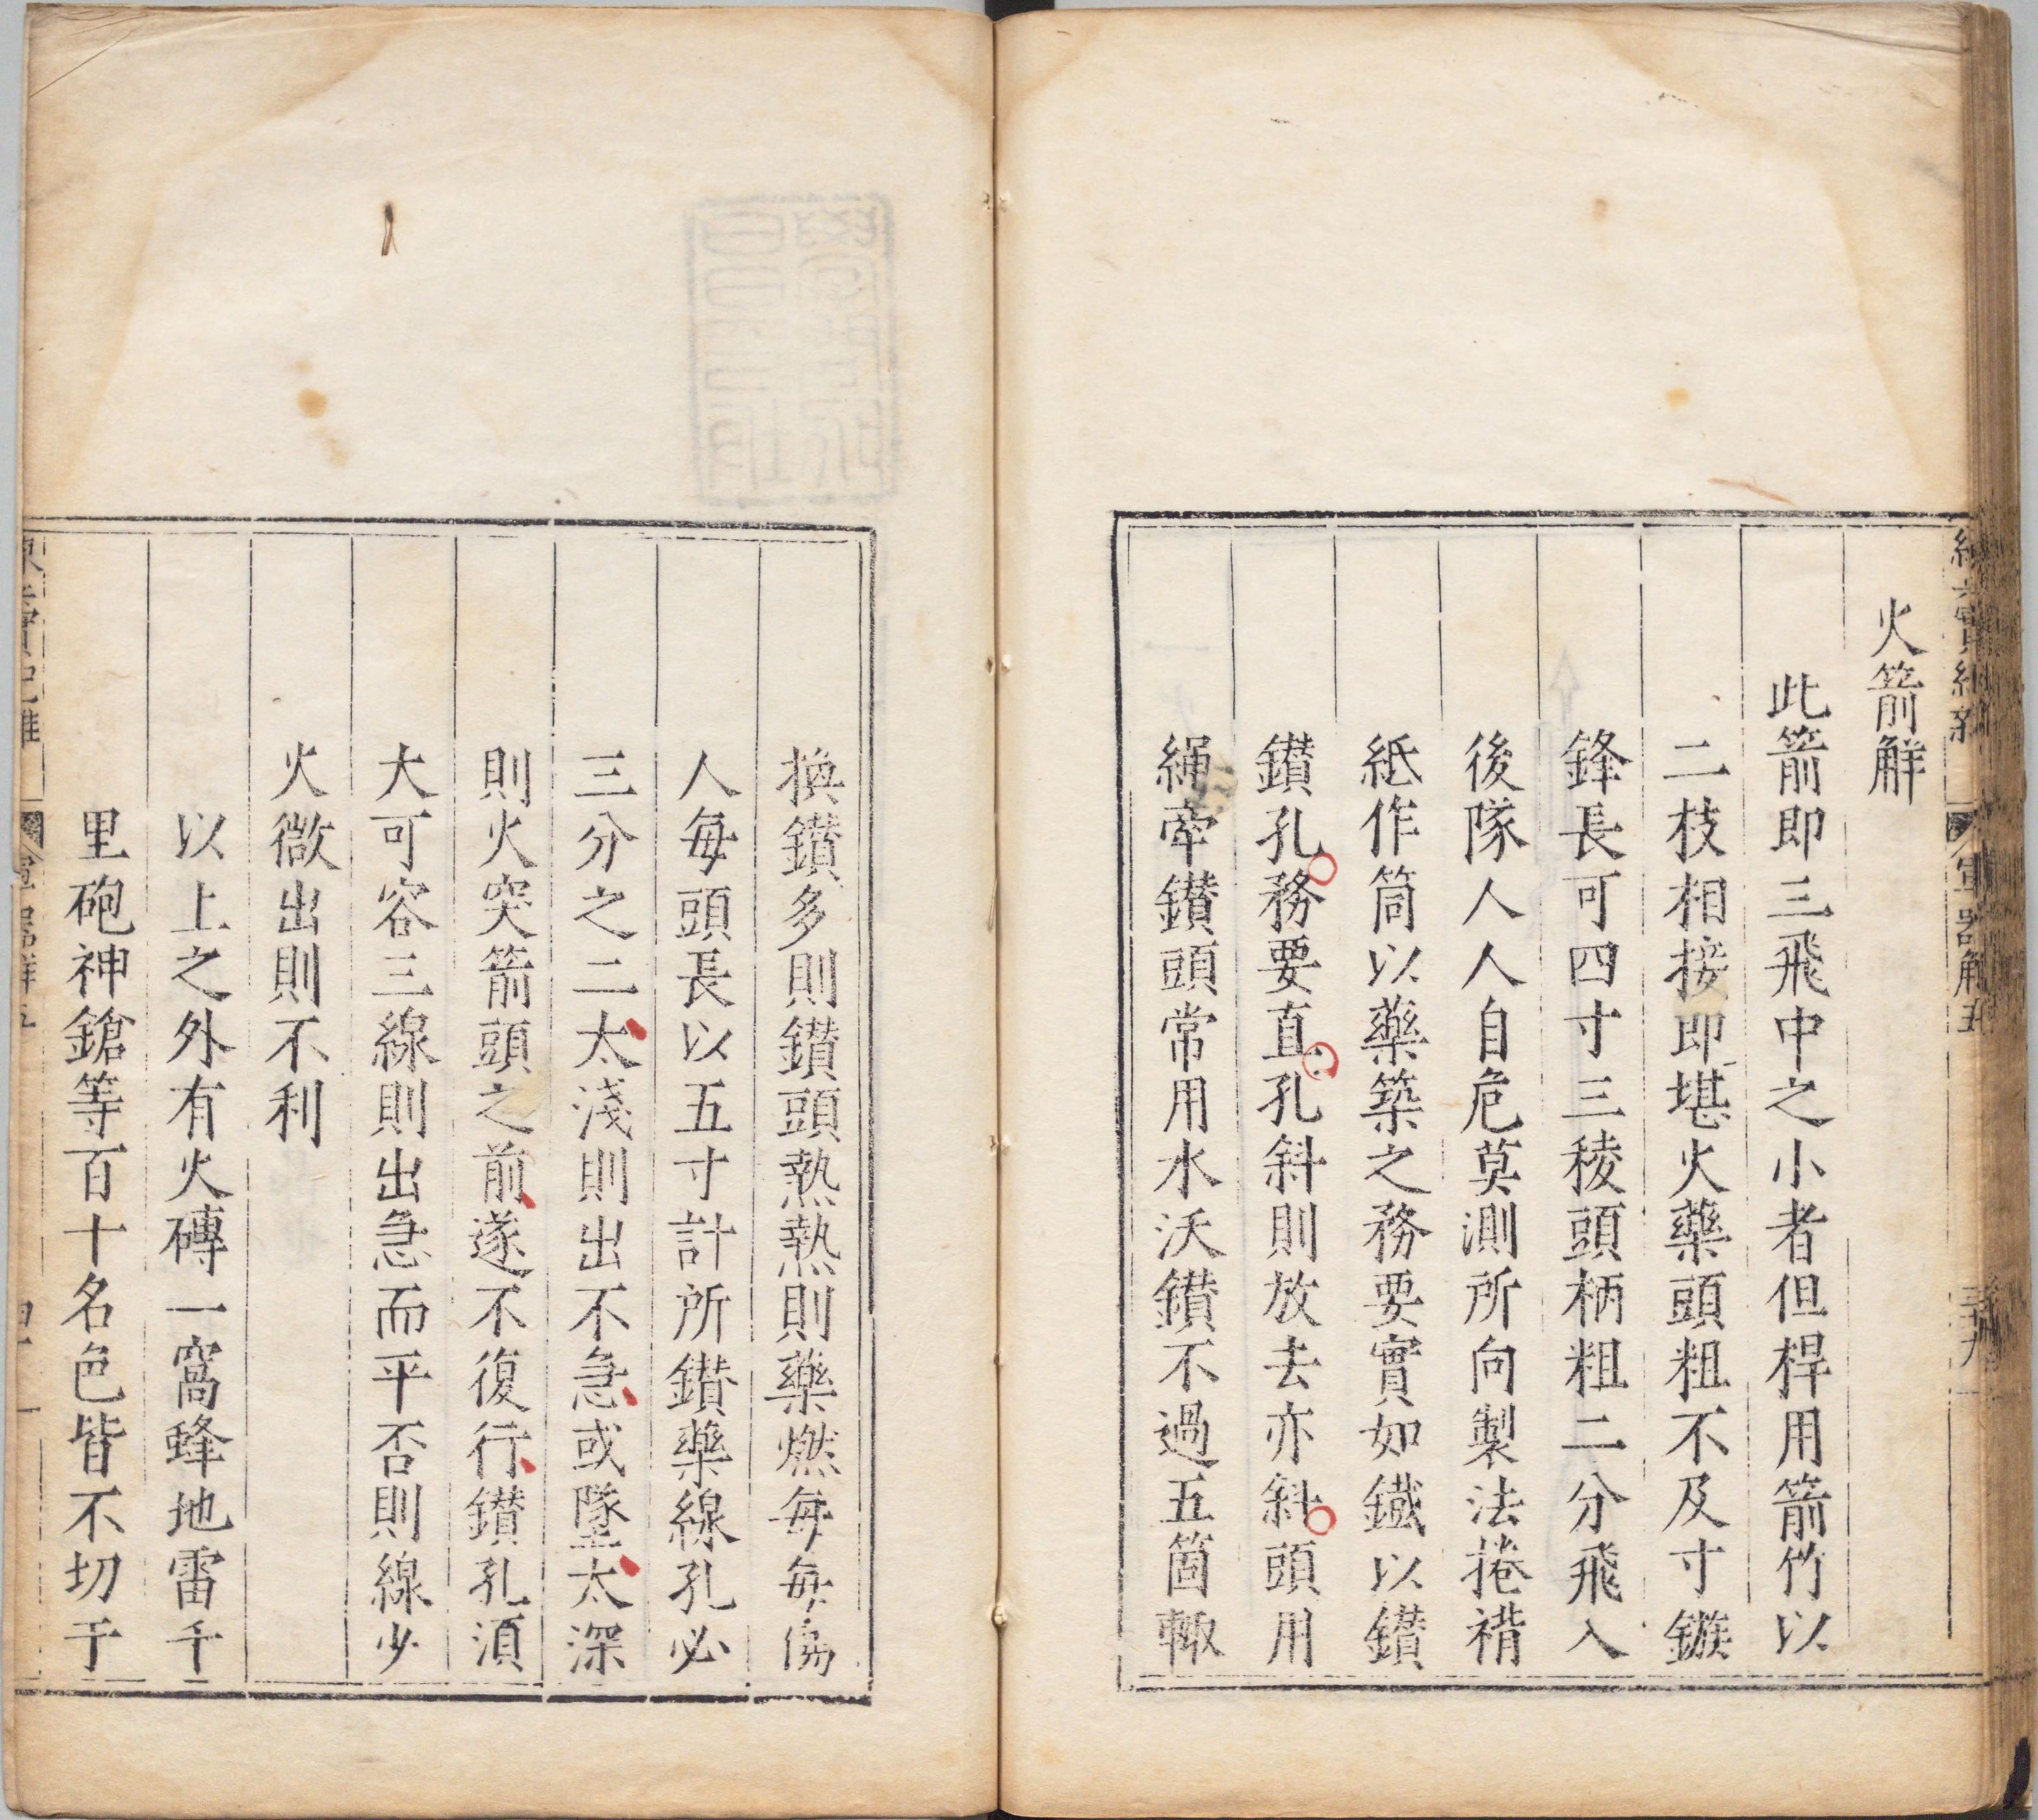 火箭解
此箭即三飛中之小者但桿用箭竹以
二枝相接即堪火藥頭粗不及寸鏃
鋒長可四寸三稜頭柄粗二分飛入
後隊人人自危莫測所向製法捲褙
紙作筒以藥築之務要實如鐵以鑚
鑚孔務要直孔斜則放去亦斜頭用
繩牽鑚頭常用水沃鑚不過五箇輙
換鑚多則鑚頭熱熱則藥燃每每傷
人每頭長以五寸計所鑚藥線孔必
三分之二太淺則出不急或墜太深
則火突箭頭之前遂不復行鑚孔須
大可容三線則出急而平否則線少
火微出則不利
以上之外有火磚一窩蜂地雷千
里砲神鎗等百十名色皆不切于